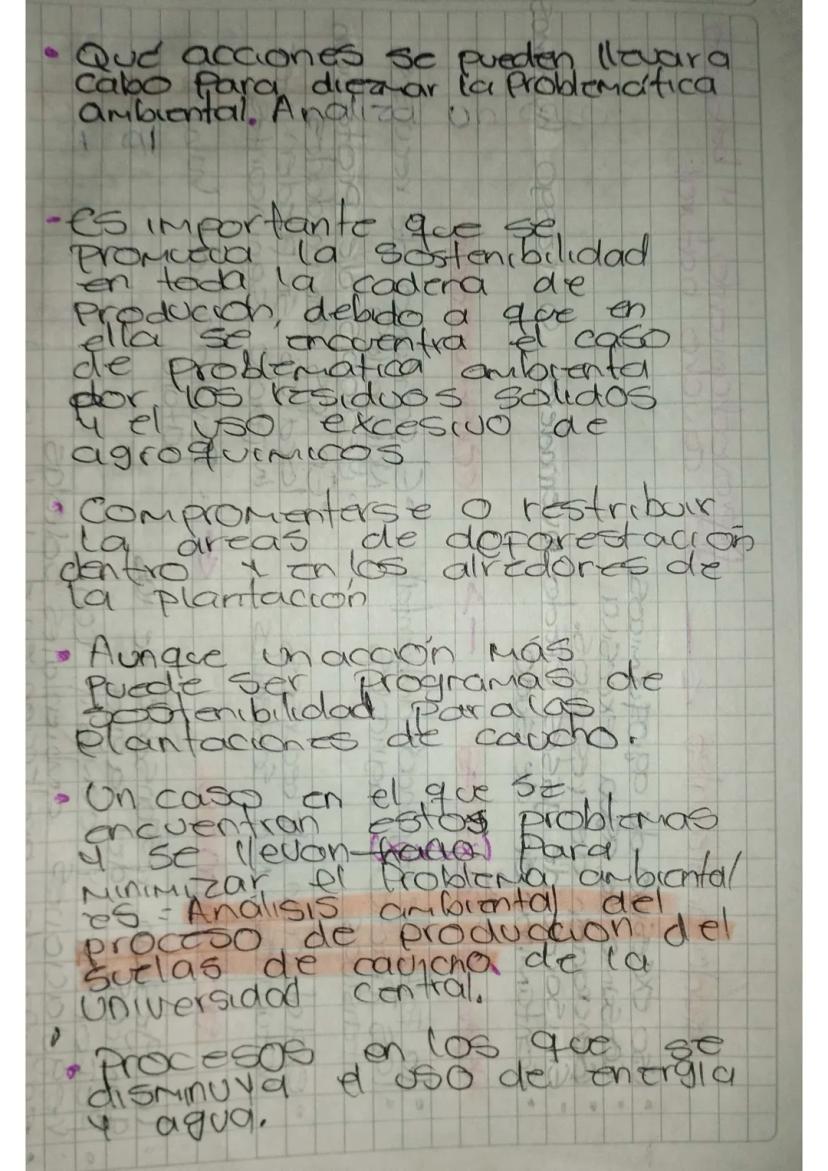 • Que acciones se pueden llevar a
cabo para diezmar la problemática
ambiental. Analiza un
- es importante que se
promueva la sostenibilidad
en toda la cadera de
producción, debido a que en
ella se encuentra el caso
de problematica ambienta
por los residuos solidos
y el uso excesivo de
agroquimicos
• Compromenterse o restribuir
la areas de deforestación
dentro y en los alredores de
la plantación
• Aunque un acción más
puede ser programas de
sostenibilidad para las
plantaciones de caucho.
• Un caso en el que se
encuentran estos problemas
y se llevon para
minimizar el problema ambiental
es = Análisis ambiental del
proceso de produccion del
suelas de caucho de la
universidad central.
• Procesos en los que se
disminuya el uso de energía
y agua.